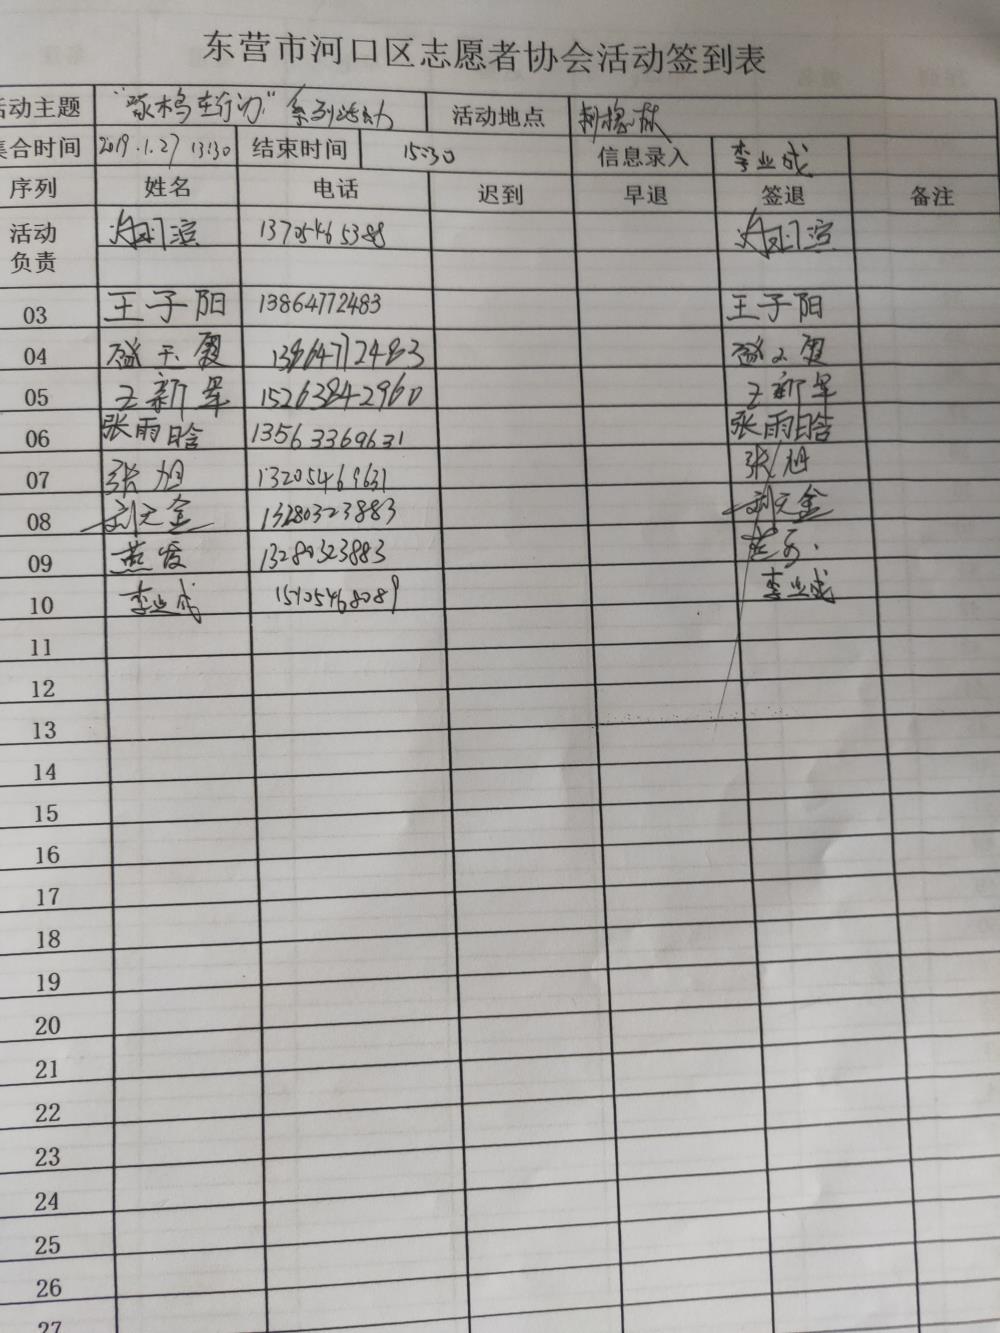 东营市河口区志愿者协会活动签到表
活动主题 "啄木鸟在行动"系列活动 活动地点
集合时间 2019.1.27 13:30 结束时间 15:30 信息录入 李业成
序列 姓名 电话 迟到 早退 签退 备注
活动负责 13705465388
03 王子阳 13864772483 王子阳
04 13864712483
05 王新军 15263842960 王新军
06 张雨晗 13563369631 张雨晗
07 张旭 13205469631 张旭
08 刘天金 13280323883 刘天金
09 燕 13280323883
10 李业成 15105468089 李业成
11
12
13
14
15
16
17
18
19
20
21
22
23
24
25
26
27